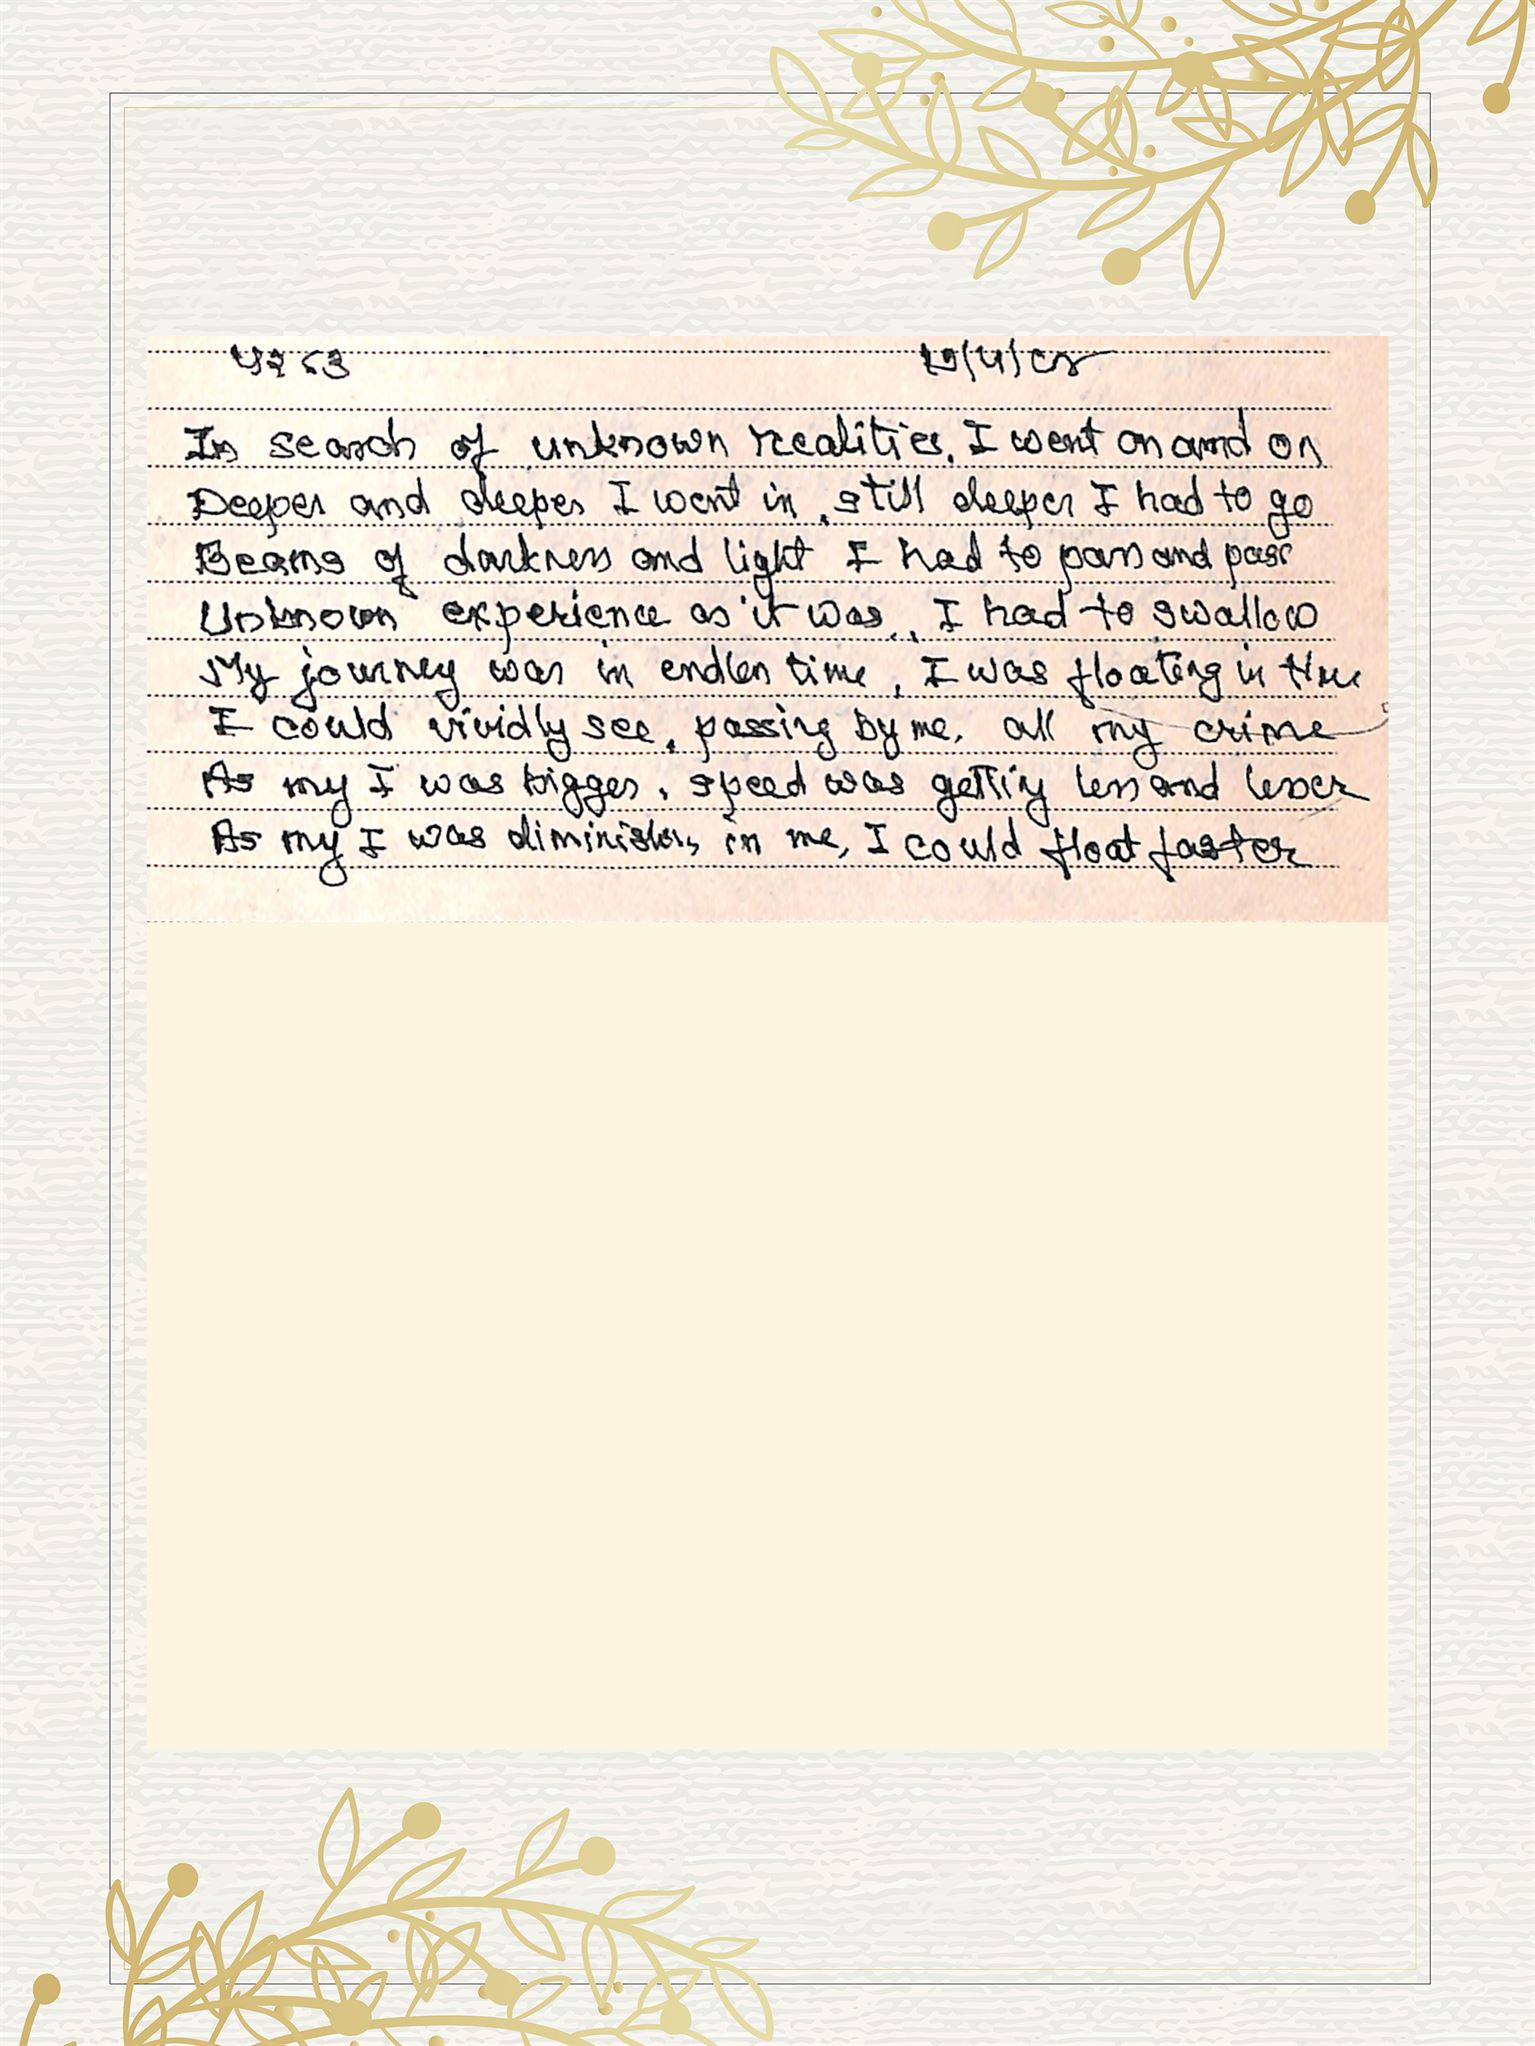 In search of unknown realities, I went on and on
Deeper and deeper I went in, still deeper I had to go
Beams of darkness and light I had to pass and pass
Unknown experience as it was, I had to swallow
My journey was in endless time, I was floating in
I could vividly see, passing by me, all my crime
As my I was bigger, speed was getting less and lesser
As my I was diminishing in me, I could float faster